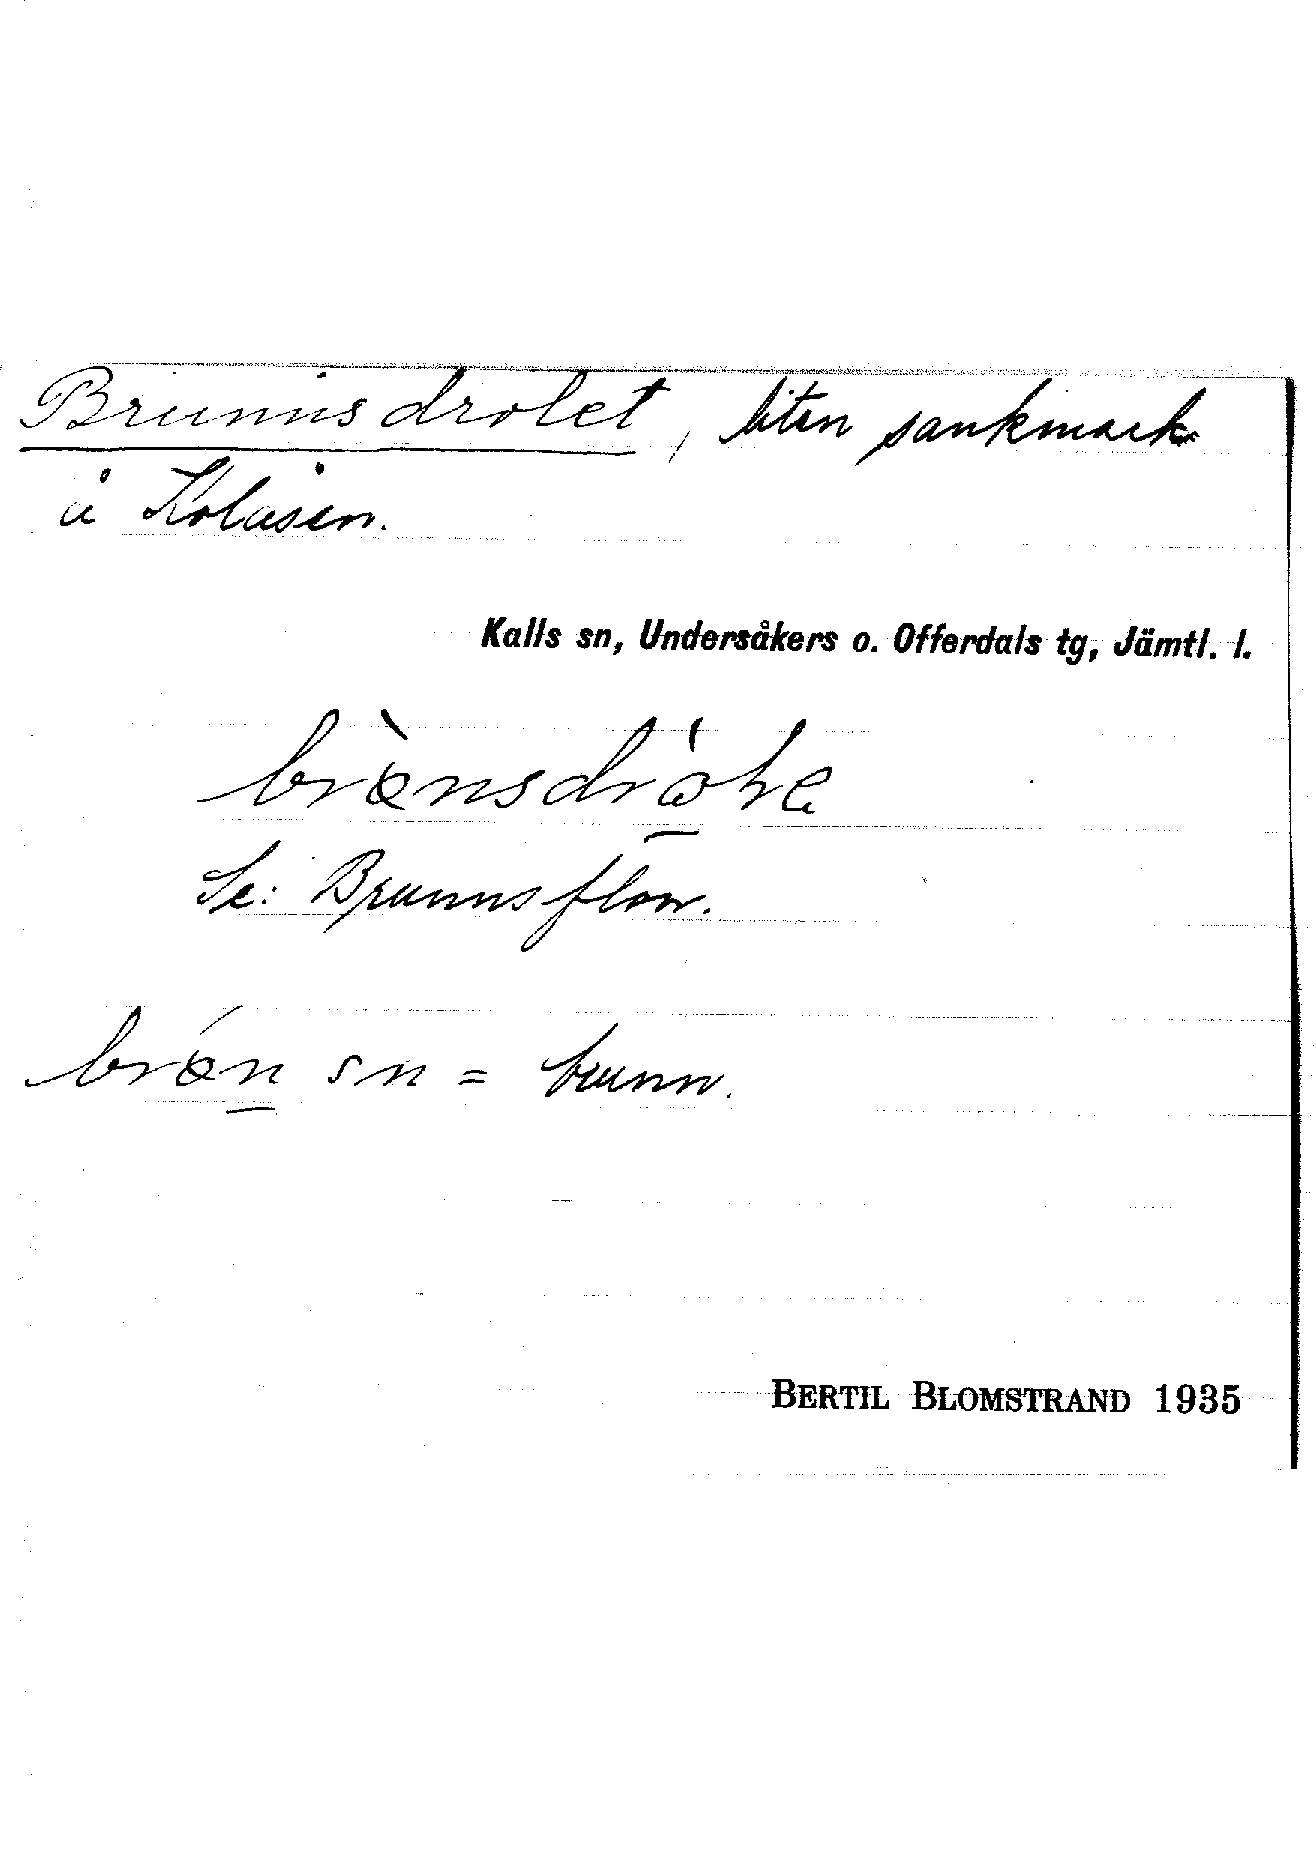 Brunnsdrolet, liten sankmark
å Kolåsen.
Kalls sn, Undersåkers o. Offerdals tg, Jämtl. l.
Se: Brunnsflon.
sn = brunn.
BERTIL BLOMSTRAND 1935